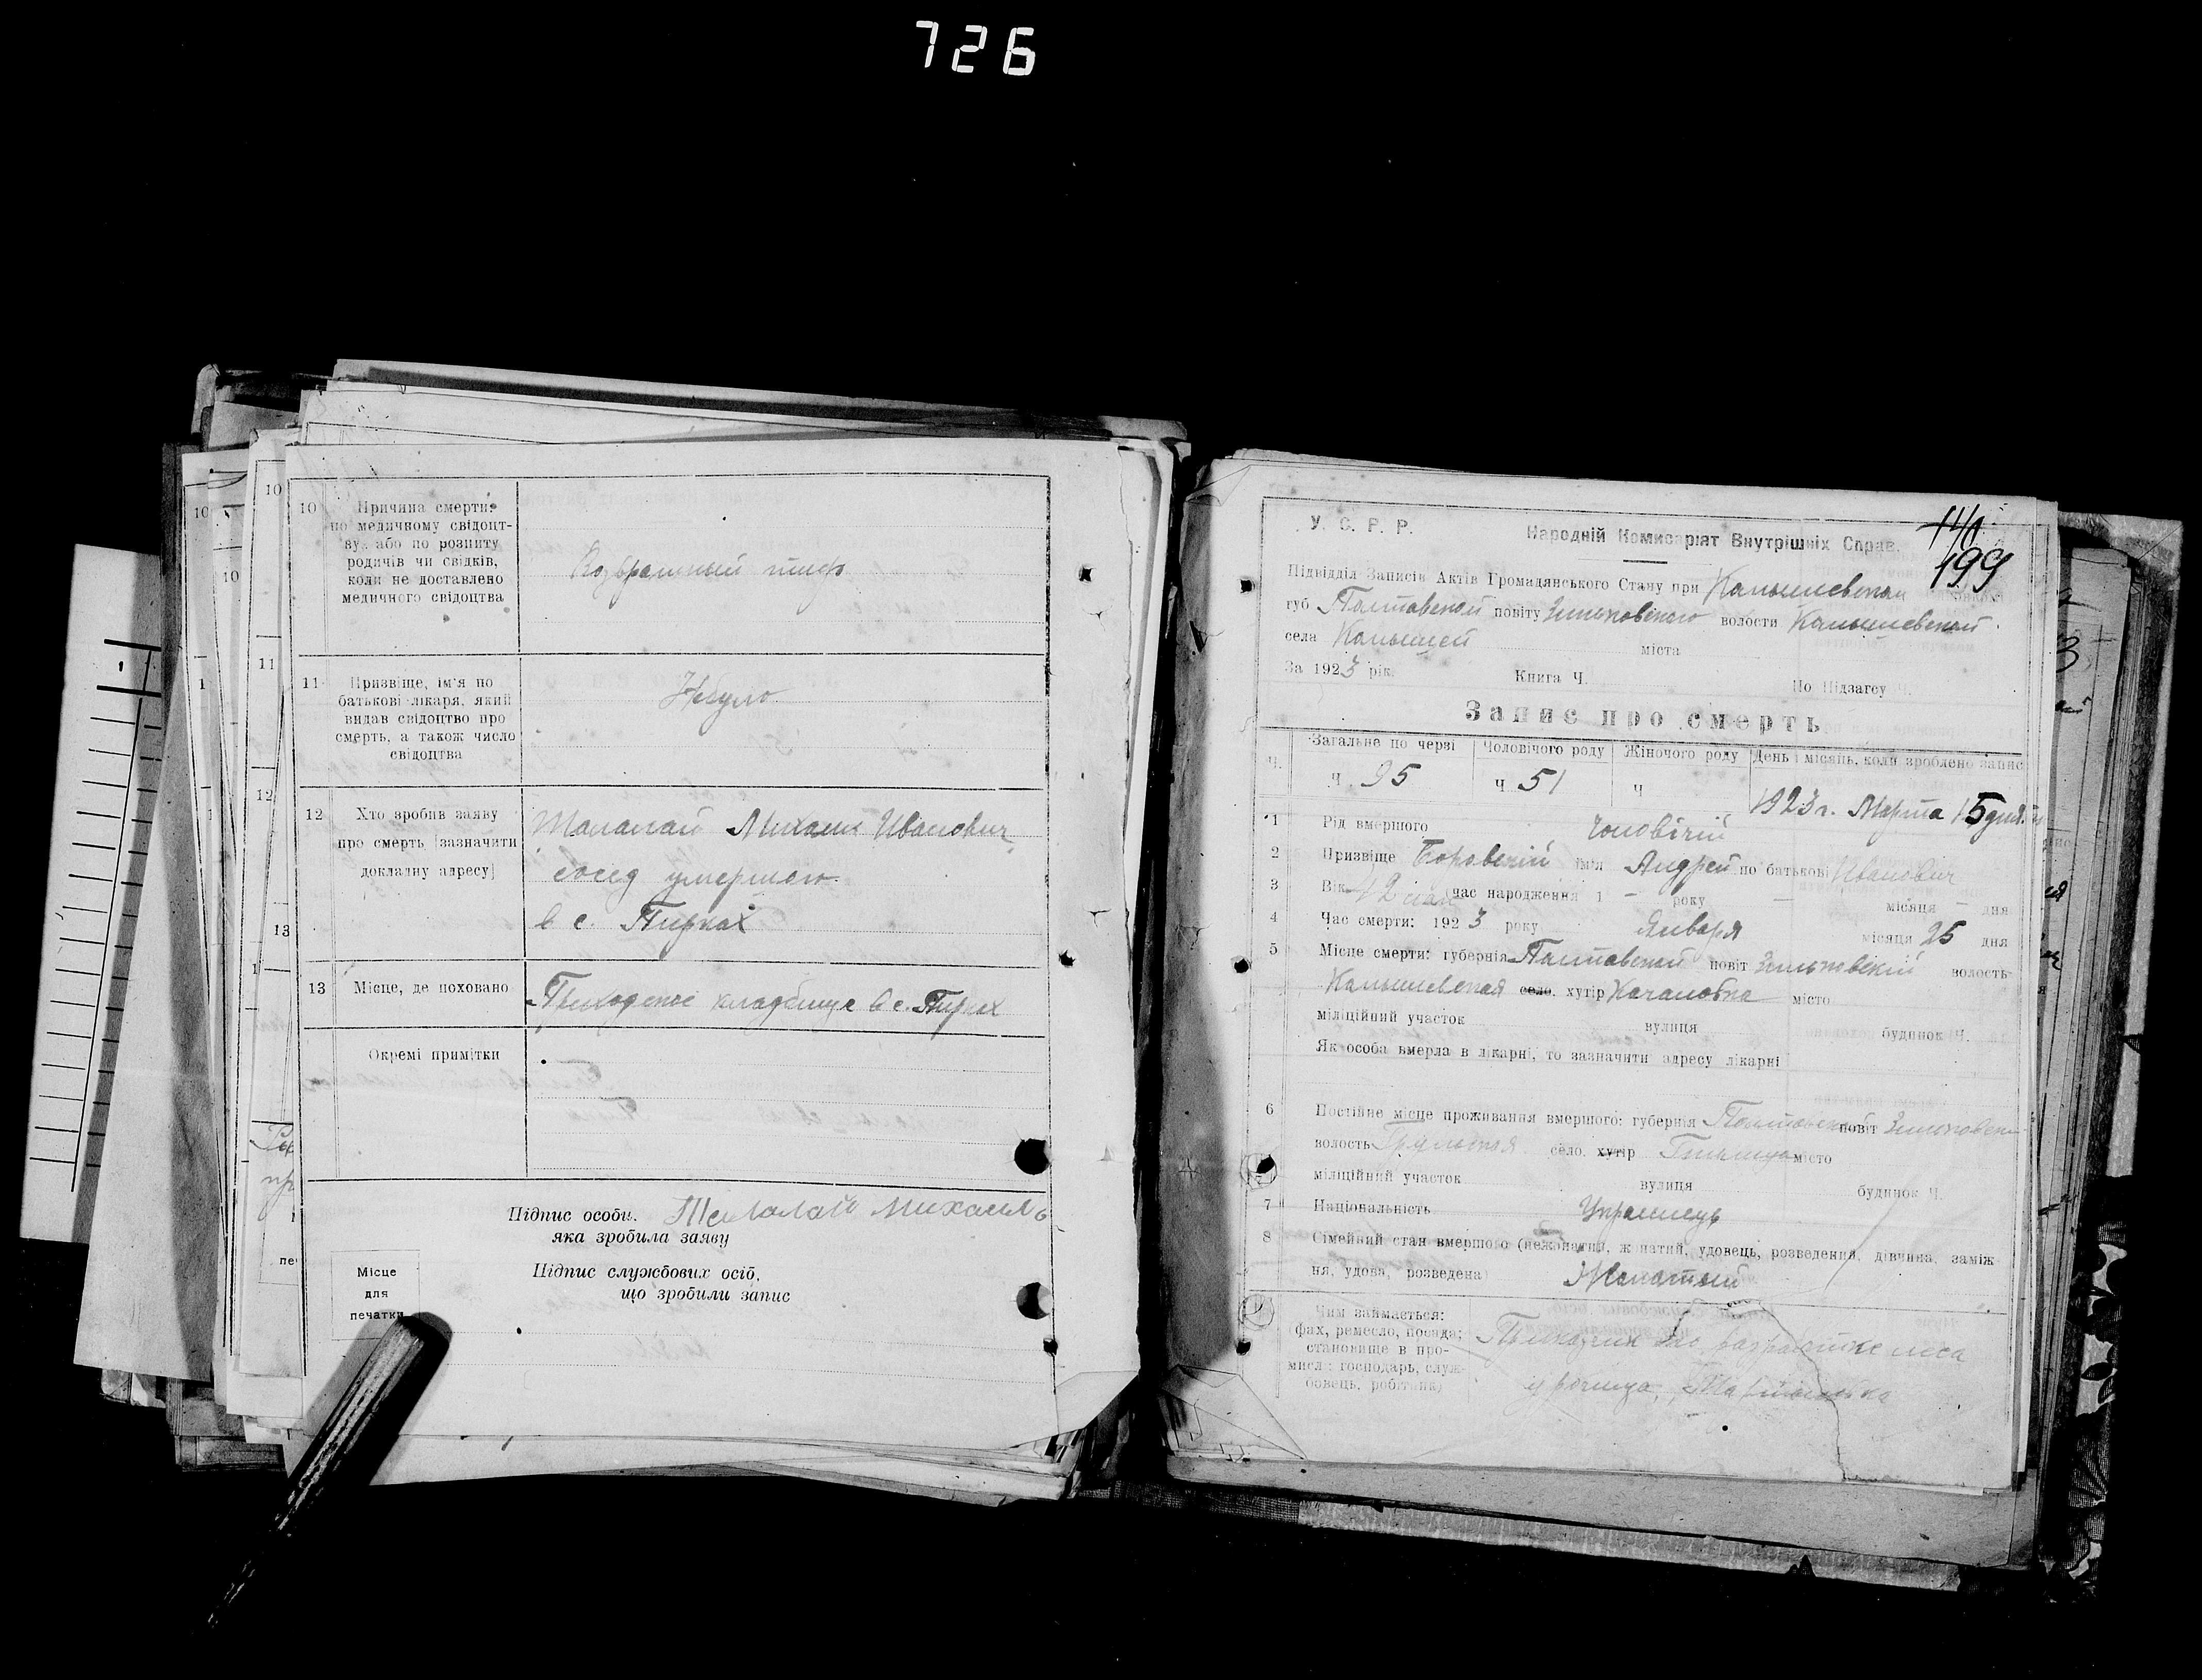 726
10
Причина смерти:
по медичному свідоцт-
ву або по розпиту
родичів чи свідків,
коли не доставлено
медичного свідоцтва
Возвратный тиф
11
Призвіще, ім'я по
батькові лікаря, який
видав свідоцтво про
смерть, а також число
свідоцтва
Небуло
12
Хто зробив заяву
про смерть [зазначити
докладну адресу]
Шаламай Михаил Иванович
сосед умершего
в с. Пирках
13
Місце, де поховано
Приходское кладбище в с. Пирках
Окремі примітки
Підпис особи,
яка зробила заяву
Михаил
Підпис службових осіб,
що зробили запис
Місце
для
печатки
У. С. Р. Р.
Народній Комисаріят Внутрішніх Справ.
199
Підвідділ Записів Актів Громадянського Стану при Камышевской
губ Полтавской повіту Зиньковского волости Камышевской
села Камышей міста
За 1923 рік. Книга Ч. По Підзагсу Ч.
Запис про смерть
Ч. Загальне по черзі Чоловічого роду Жіночого роду День і місяць, коли зроблено запис
Ч 95 Ч 51 Ч 1923 г. Марта 15 дня
1 Рід вмершого чоловічій
2 Призвіще Боровский ім'я Андрей по батькові Иванович
3 Вік 42 час народження 1 – року – місяця – дня
4 Час смерти: 1923 року Января місяця 25 дня
5 Місце смерти: губернія Полтавской повіт Зиньковский волость
Камышевская село, хутір Качановка місто
міліційний участок вулиця будинок Ч.
Як особа вмерла в лікарні, то зазначити адресу лікарні
6 Постійне місце проживання вмершого: губернія Полтавской повіт Зиньковский
волость село, хутір місто
міліційний участок вулиця будинок Ч.
7 Національність Украинець
8 Сімейний стан вмершого (нежонатий, жонатий, удовець, розведений, дівчина, заміж
ня, удова, розведена) Женатый
Чим займається:
фах, ремесло, посада;
становище в про-
мислі: господарь, служ-
бовець, робітник)
Приказчик по разработке леса
урочища,